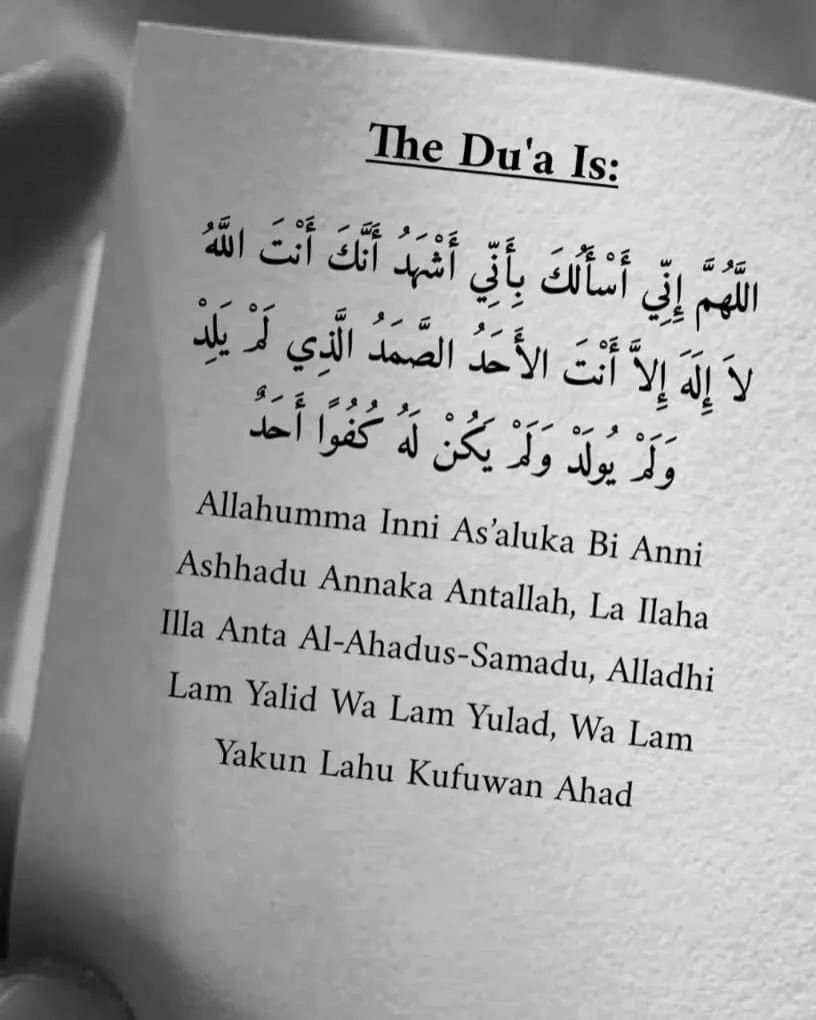 The Du'a Is:
اللَّهُمَّ إِنِّي أَسْأَلُكَ بِأَنِّي أَشْهَدُ أَنَّكَ أَنْتَ اللَّهُ
لاَ إِلَهَ إِلاَّ أَنْتَ الأَحَدُ الصَّمَدُ الَّذِي لَمْ يَلِدْ
وَلَمْ يُولَدْ وَلَمْ يَكُنْ لَهُ كُفُوًا أَحَدٌ
Allahumma Inni As’aluka Bi Anni
Ashhadu Annaka Antallah, La Ilaha
Illa Anta Al-Ahadus-Samadu, Alladhi
Lam Yalid Wa Lam Yulad, Wa Lam
Yakun Lahu Kufuwan Ahad